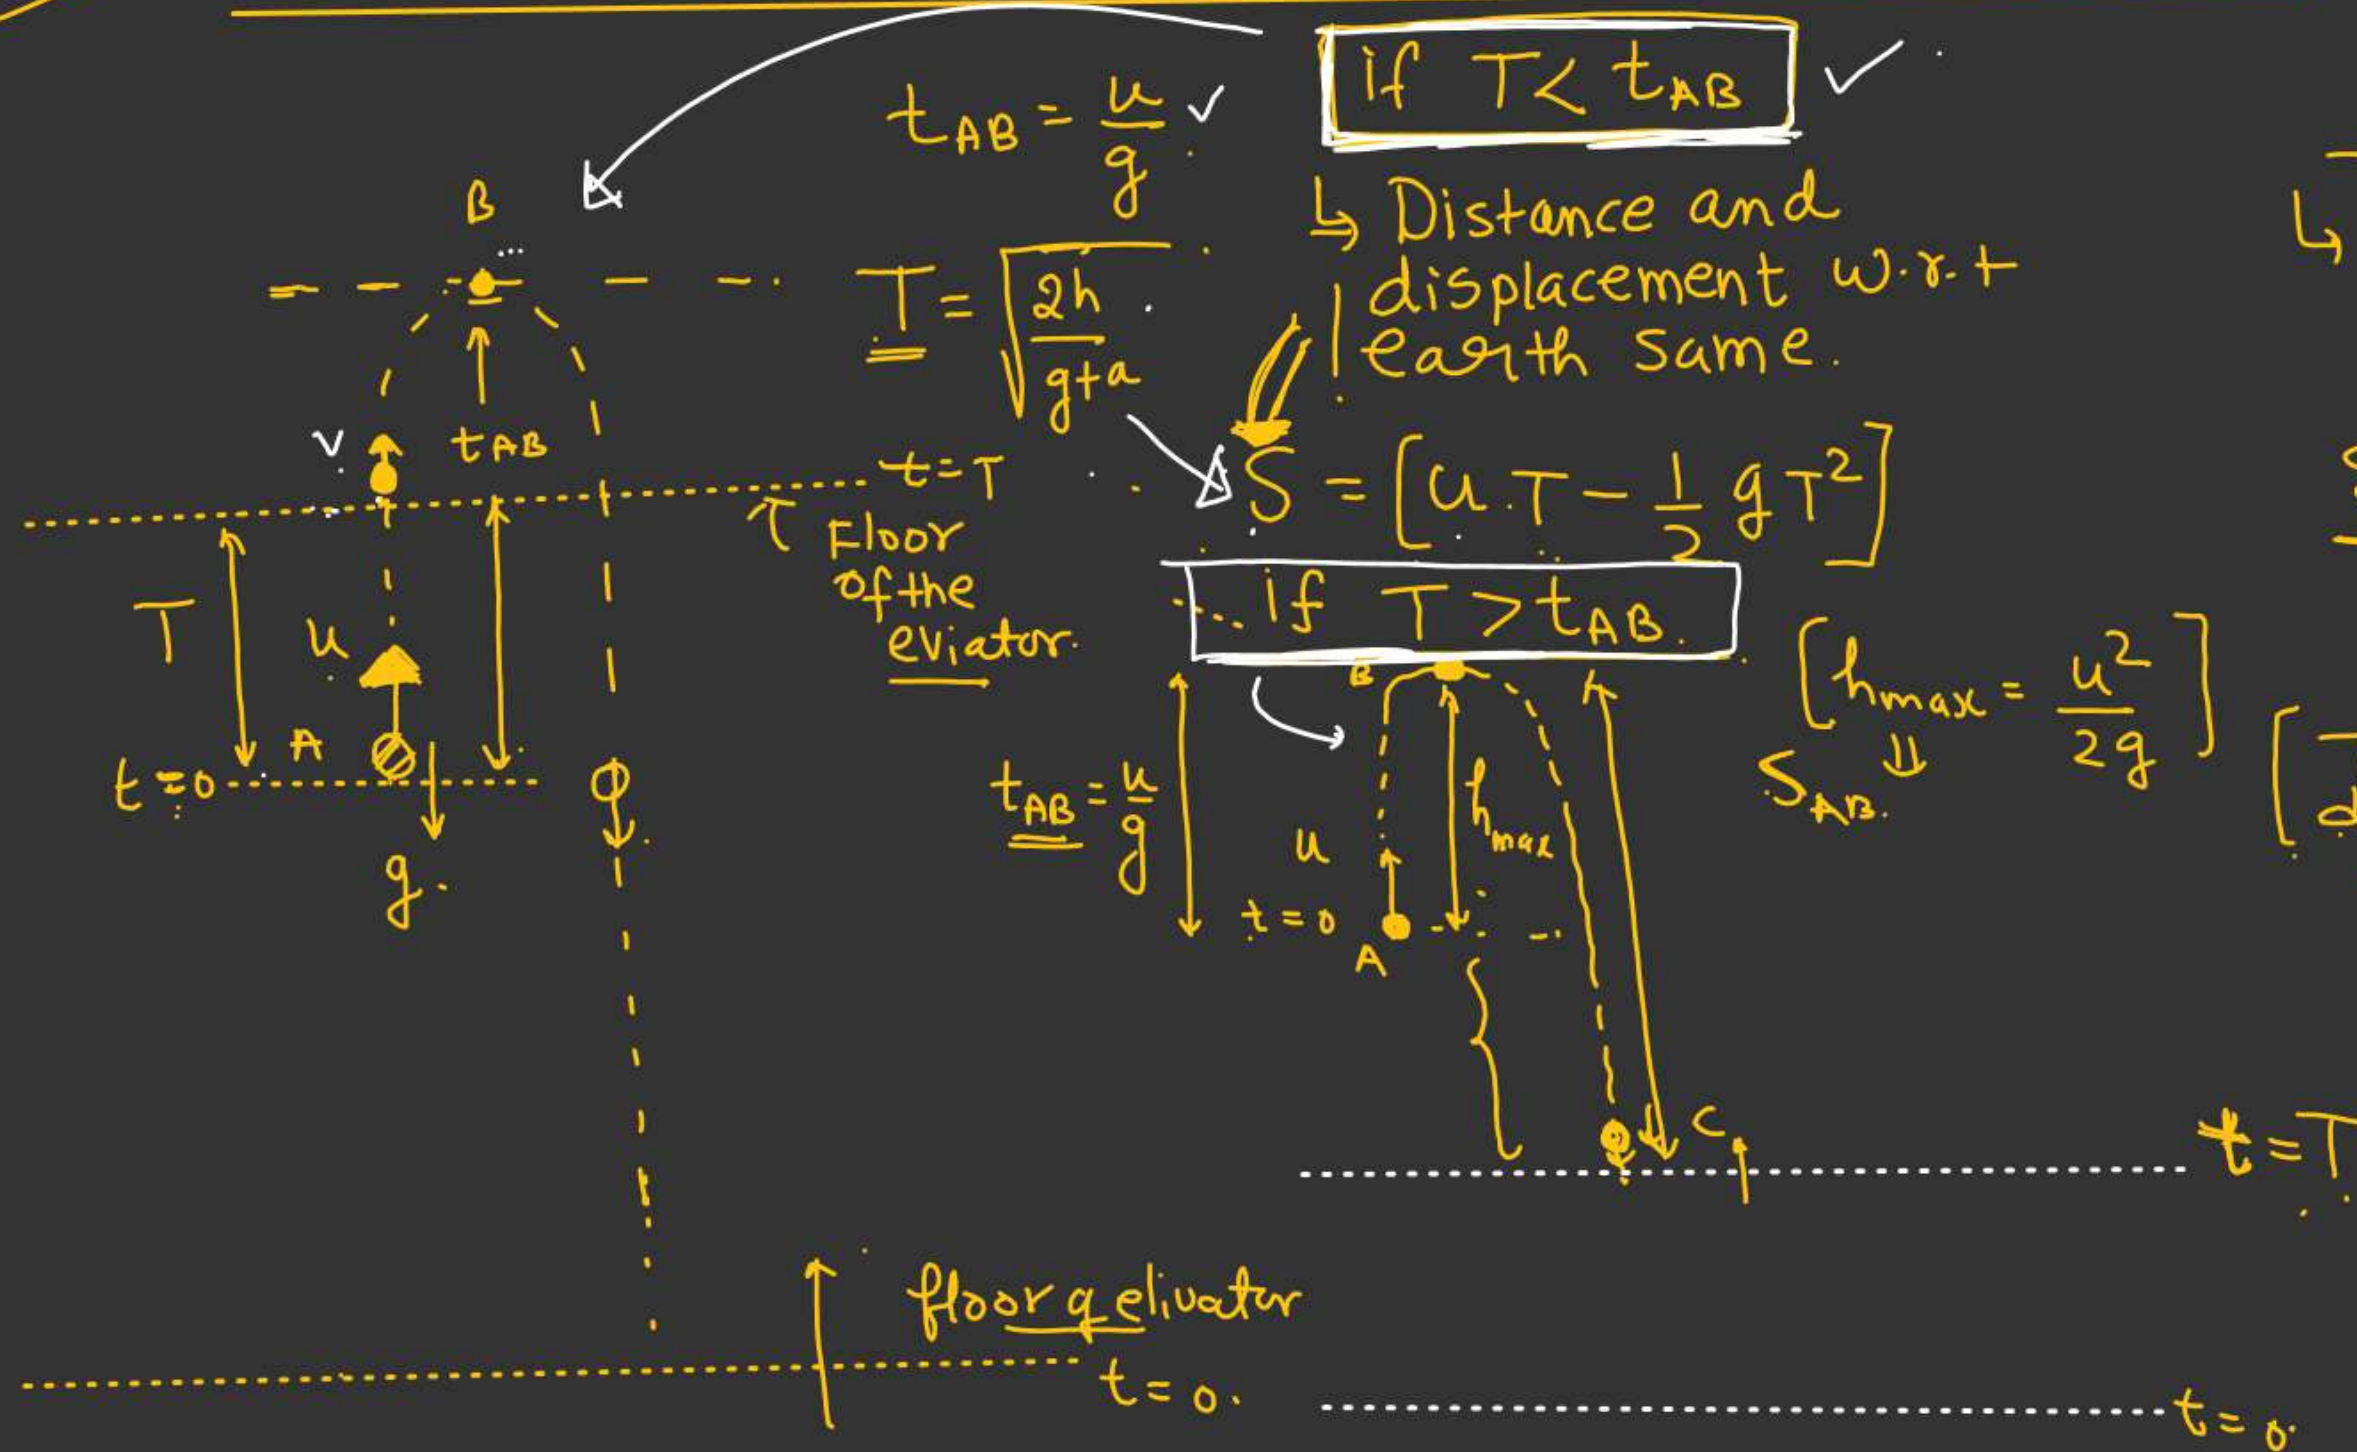 if T < t_AB
t_AB = u/g
↳ Distance and
displacement w.r.t
earth same.
B
T = √(2h/(g+a))
v
t_AB
t = T
S = [u.T - 1/2 g T²]
Floor
of the
eviator.
T
u
A
t = 0
g.
if T > t_AB.
B
[h_max = u²/2g]
⇓
S_AB.
t_AB = u/g
h_max
u
t = 0
A
C
t = T
floor of elivator
t = 0.
t = 0.